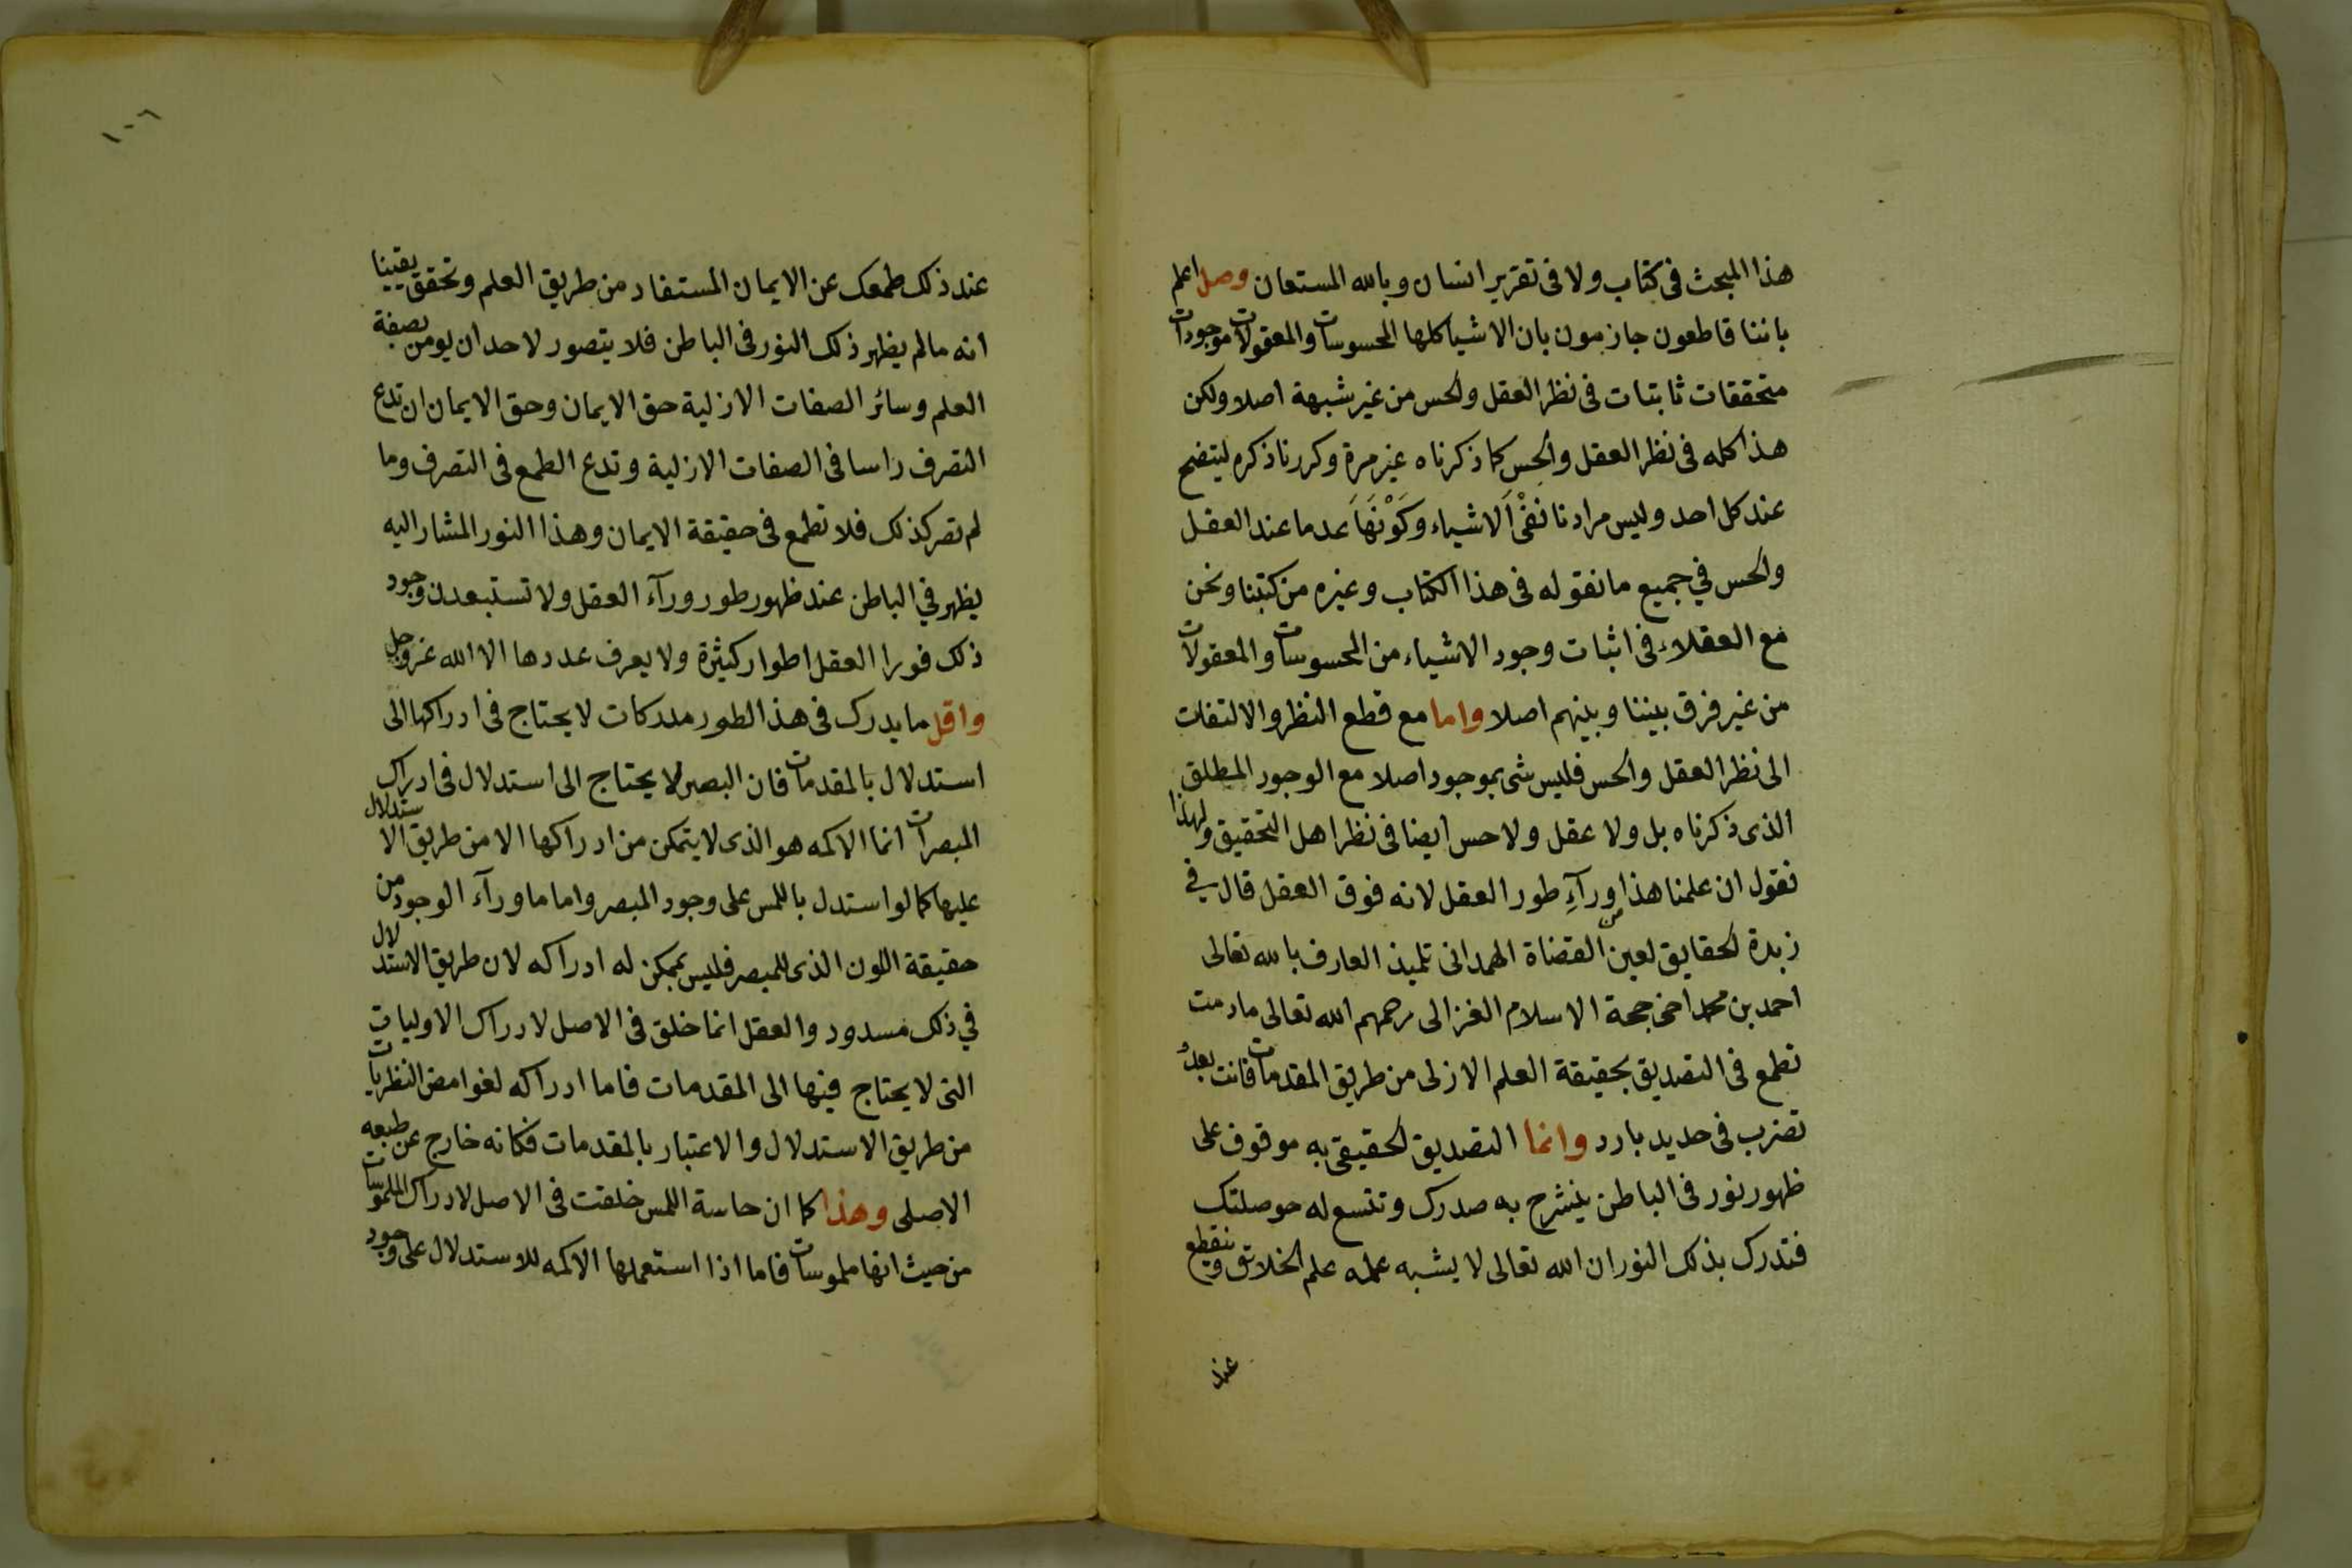 هذا المبحث فى كتاب ولا فى تقرير انسان وبالله المستعان وصل اعلم
باننا قاطعون جازمون بان الاشيا كلها المحسوسات والمعقولات موجودات
متحققات ثابتات فى نظر العقل والحس من غير شبهة اصلا ولكن
هذا كله فى نظر العقل والحس كما ذكرناه غير مرة وكررنا ذكره ليتضح
عند كل احد وليس مرادنا نَفْىَ الاشياء وكَوْنَهَا عدما عند العقل
والحس في جميع ما نقوله فى هذا الكتاب وغيره من كتبنا ونحن
مع العقلاء فى اثبات وجود الاشياء من المحسوسات والمعقولات
من غير فرق بيننا وبينهم اصلا واما مع قطع النظر والالتفات
الى نظر العقل والحس فليس شى بموجود اصلا مع الوجود المطلق
الذى ذكرناه بل ولا عقل ولا حس ايضا فى نظر اهل التحقيق ولهذا
نقول ان علمنا هذا من ورآءِ طور العقل لانه فوق العقل قال في
زبدة الحقايق لعين القضاة الهمدانى تلميذ العارف بالله تعالى
احمد بن محمد اخى حجة الاسلام الغزالى رحمهم الله تعالى ما دمت
تطمع فى التصديق بحقيقة العلم الازلى من طريق المقدمات فانت بعدُ
تضرب فى حديد بارد وانما التصديق الحقيقى به موقوف على
ظهور نور فى الباطن ينشرح به صدرك وتتسع له حوصلتك
فتدرك بذلك النور ان الله تعالى لا يشبه علمه علم الخلائق وينقطع
عند
١٠٦
عند ذلك طمعك عن الايمان المستفاد من طريق العلم وتحقق يقينا
انه ما لم يظهر ذلك النور فى الباطن فلا يتصور لاحد ان يومن بصفة
العلم وسائر الصفات الازلية حق الايمان وحق الايمان ان تدع
التصرف راسا فى الصفات الازلية وتدع الطمع فى التصرف وما
لم تترك ذلك فلا تطمع فى حقيقة الايمان وهذا النور المشار اليه
يظهر في الباطن عند ظهور طور ورآء العقل ولا تستبعدن وجود
ذلك فورا العقل اطوار كثيرة ولا يعرف عددها الا الله عز وجل
واقل ما يدرك فى هذا الطور مدركات لا يحتاج فى ادراكها الى
استدلال بالمقدمات فان البصير لا يحتاج الى استدلال فى ادراك
المبصرات انما الاكمه هو الذى لا يتمكن من ادراكها الا من طريق الاستدلال
عليها كما لو استدل باللمس على وجود المبصر واما ما ورآء الوجود من
حقيقة اللون الذى للمبصر فليس بممكن له ادراكه لان طريق الاستدلال
في ذلك مسدود والعقل انما خلق فى الاصل لادراك الاوليات
التى لا يحتاج فيها الى المقدمات فاما ادراكه لغوامض النظريات
من طريق الاستدلال والاعتبار بالمقدمات فكانه خارج عن طبعه
الاصلى وهذا كما ان حاسة اللمس خلقت فى الاصل لادراك الملموسات
من حيث انها ملموسات فاما اذا استعملها الاكمه للاستدلال على وجود